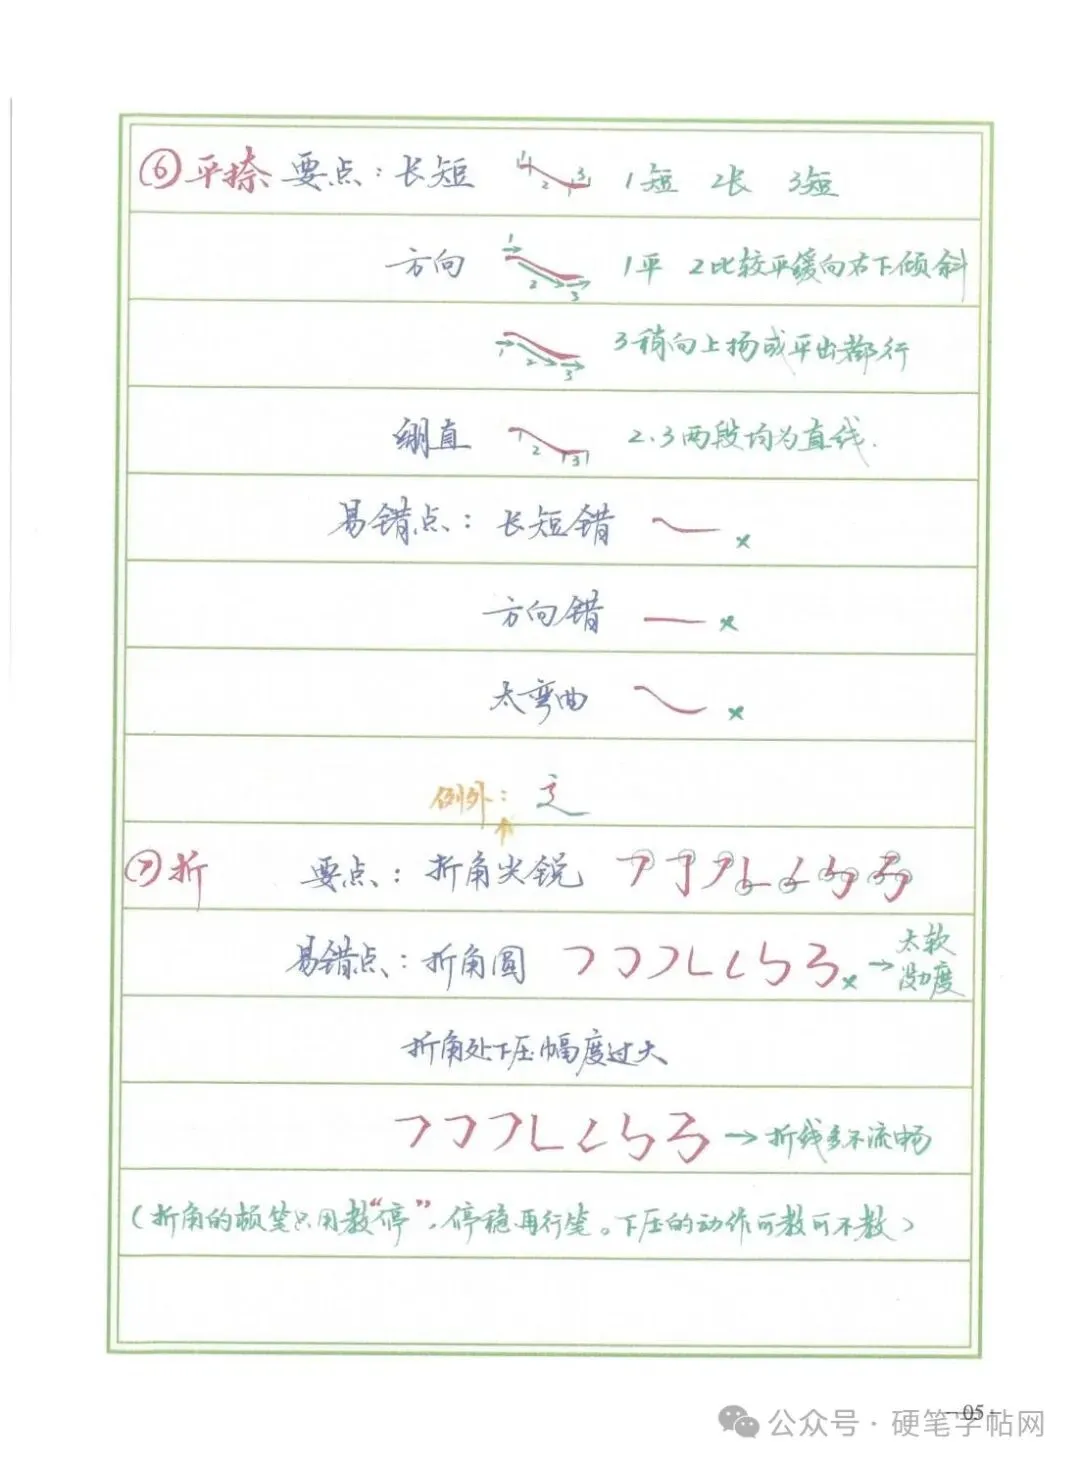 ⑥平捺 要点：长短 1 2 3 1短 2长 3短
方向 1 2 3 1平 2比较平缓向右下倾斜
1 2 3 3稍向上扬或平出都行
绷直 1 2 3 2.3两段均为直线.
易错点：长短错 ×
方向错 ×
太弯曲 ×
例外：之
⑦折 要点：折角尖锐
易错点：折角圆 × → 太软
没力度
折角处下压幅度过大
→ 折线多不流畅
(折角的顿笔只用教“停”，停稳再行笔。下压的动作可教可不教)
—05—
公众号·硬笔字帖网